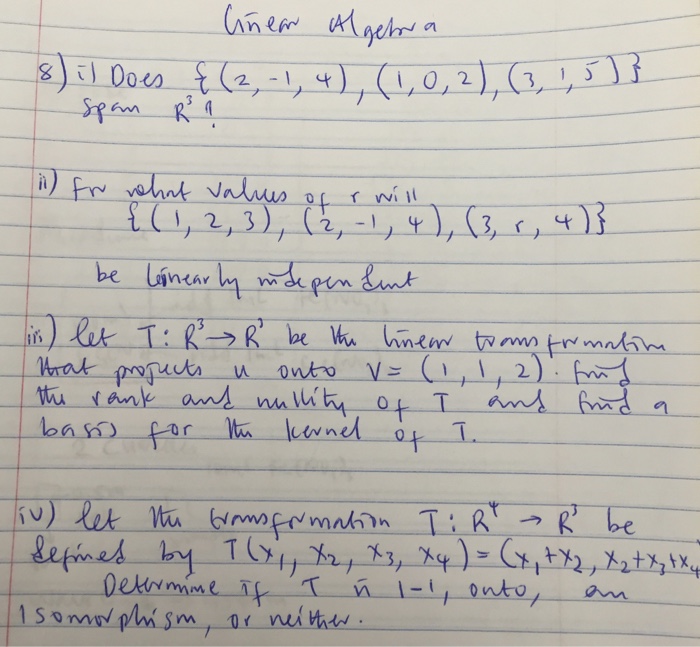 Linear Algebra
8) i) Does {(2, -1, 4), (1, 0, 2), (3, 1, 5)}
Span R³?
ii) For what values of r will
{(1, 2, 3), (2, -1, 4), (3, r, 4)}
be linearly independent
iii) let T: R³ → R³ be the linear transformation
that projects u onto V = (1, 1, 2). find
the rank and nullity of T and find a
basis for the kernel of T.
iv) let the transformation T: R⁴ → R³ be
defined by T(x₁, x₂, x₃, x₄) = (x₁+x₂, x₂+x₃+x₄
Determine if T is 1-1, onto, an
isomorphism, or neither.